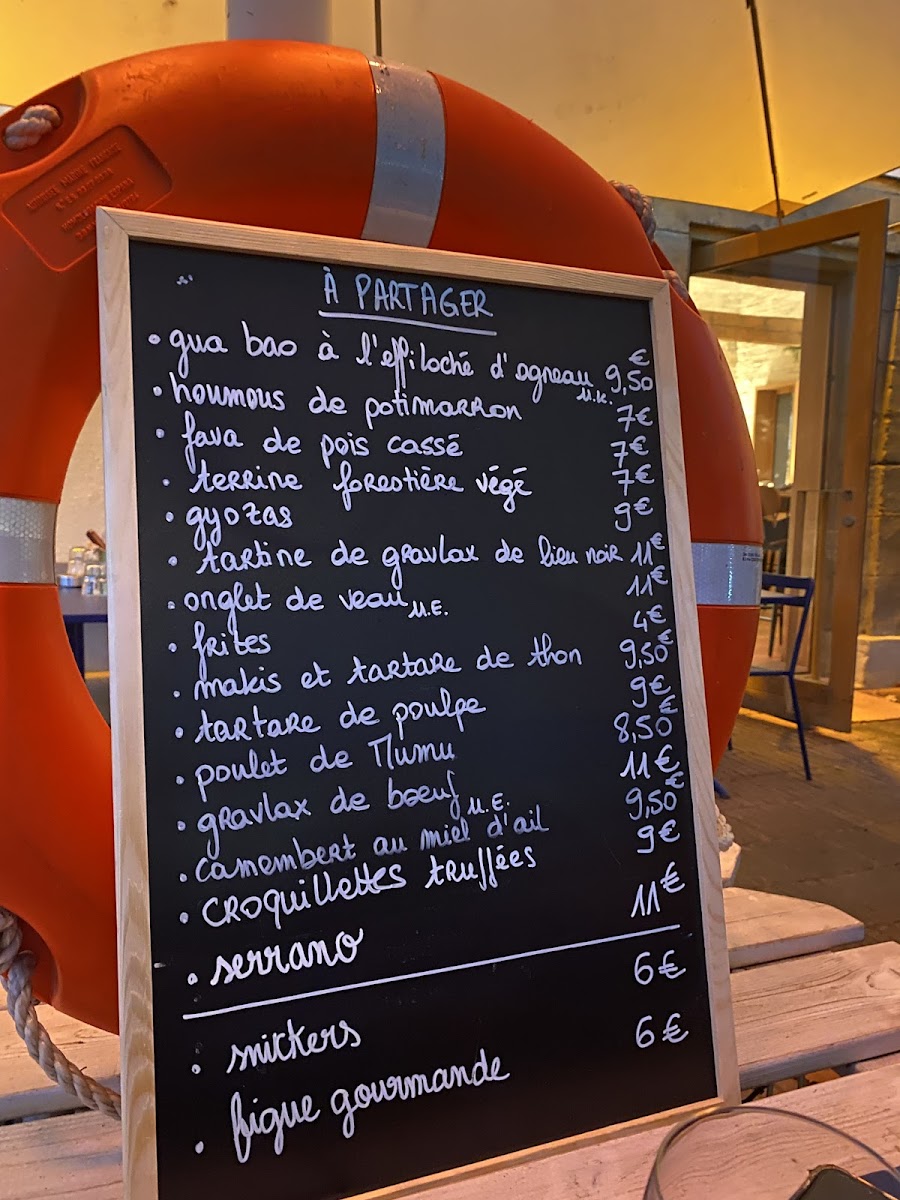 À PARTAGER
• gua bao à l'effiloché d'agneau U.K. 9,50€
• houmous de potimarron 7€
• fava de pois cassé 7€
• terrine forestière végé 7€
• gyozas 9€
• tartine de gravlax de lieu noir 11€
• onglet de veau U.E. 11€
• frites 4€
• makis et tartare de thon 9,50€
• tartare de poulpe 9€
• poulet de Mumu 8,50€
• gravlax de bœuf U.E. 11€
• camembert au miel d'ail 9,50€
• croquillettes truffées 9€
• serrano 11€
• snickers 6€
• figue gourmande 6€